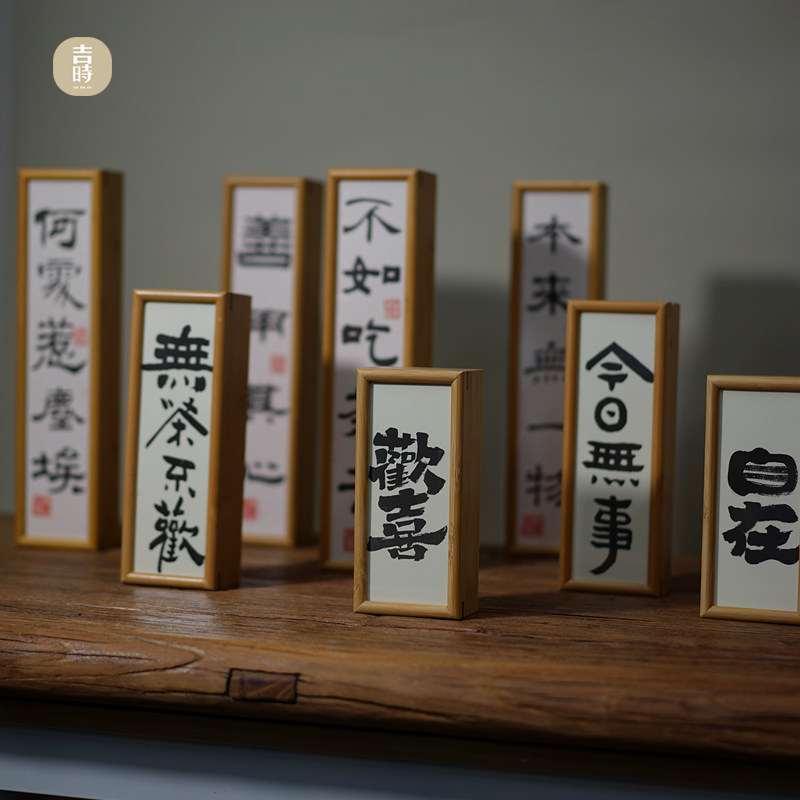 吉時
何處惹塵埃
善用其心
不如吃
本來無一物
無茶不歡
歡喜
今日無事
自在